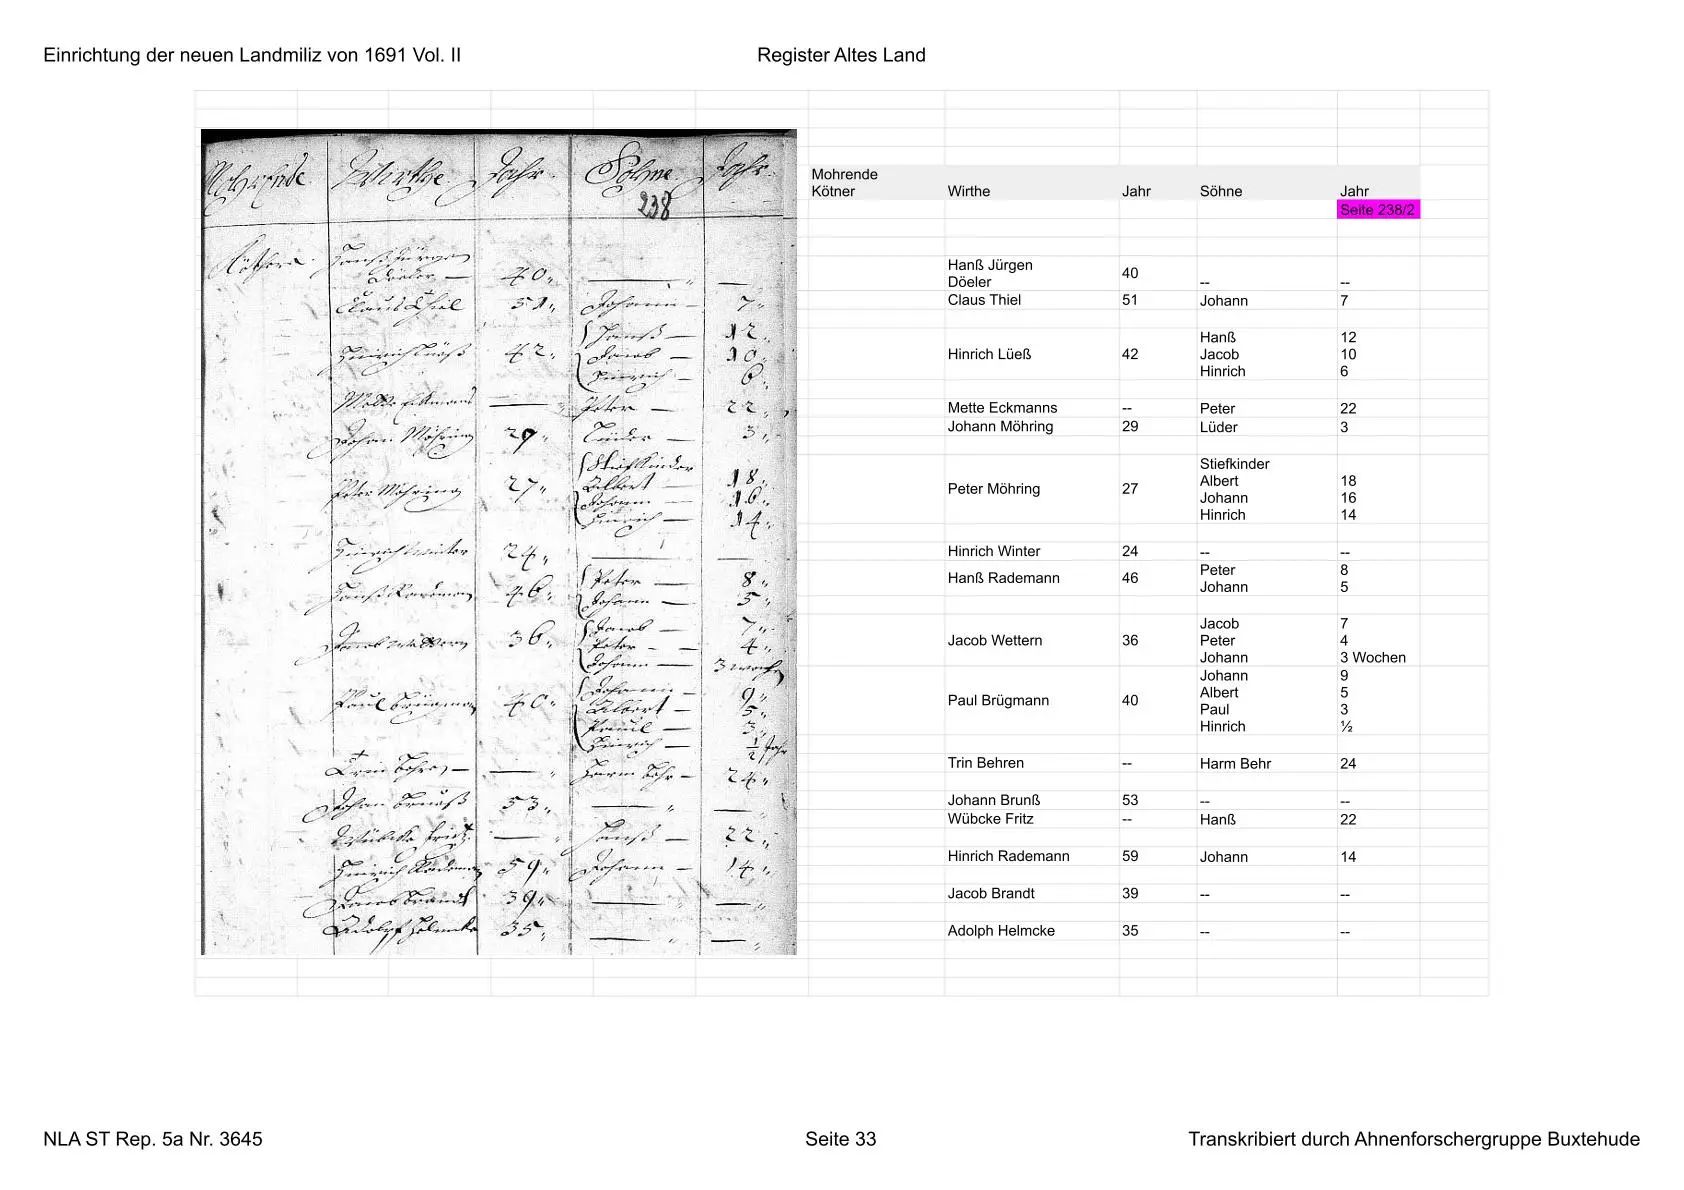 Einrichtung der neuen Landmiliz von 1691 Vol. II Register Altes Land
Mohrende Wirthe Jahr. Söhne Jahr.
238
Köthner. Hanß Jürgen
Döeler — 40. — —
Claus Thiel 51. Johann — 7.
Hanß — 12.
Hinrich Lüeß 42. Jacob — 10.
Hinrich — 6.
Mette Eckmanns — Peter — 22.
Johan Möhring 29. Lüder — 3.
Stiefkinder
Peter Möhring 27. Albert — 18.
Johann — 16.
Hinrich — 14.
Hinrich Winter 24. — —
Hanß Rademan 46. Peter — 8.
Johann — 5.
Jacob — 7.
Jacob Wettern 36. Peter — 4.
Johann — 3 wochen
Johann — 9.
Paul Brügman 40. Albert — 5.
Pauul — 3.
Hinrich — ½ Jahr
Trin Behren — — Harm Behr — 24.
Johan Brunß 53. — —
Wübcke Fritz — Hanß — 22.
Hinrich Rademan 59. Johann — 14.
Jacob Brandt 39. — —
Adolpf Helmcke 35. — —
Mohrende
Kötner Wirthe Jahr Söhne Jahr
Seite 238/2
Hanß Jürgen
Döeler 40 -- --
Claus Thiel 51 Johann 7
Hanß 12
Hinrich Lüeß 42 Jacob 10
Hinrich 6
Mette Eckmanns -- Peter 22
Johann Möhring 29 Lüder 3
Stiefkinder
Albert 18
Peter Möhring 27 Johann 16
Hinrich 14
Hinrich Winter 24 -- --
Peter 8
Hanß Rademann 46 Johann 5
Jacob 7
Jacob Wettern 36 Peter 4
Johann 3 Wochen
Johann 9
Albert 5
Paul Brügmann 40 Paul 3
Hinrich ½
Trin Behren -- Harm Behr 24
Johann Brunß 53 -- --
Wübcke Fritz -- Hanß 22
Hinrich Rademann 59 Johann 14
Jacob Brandt 39 -- --
Adolph Helmcke 35 -- --
NLA ST Rep. 5a Nr. 3645 Seite 33 Transkribiert durch Ahnenforschergruppe Buxtehude